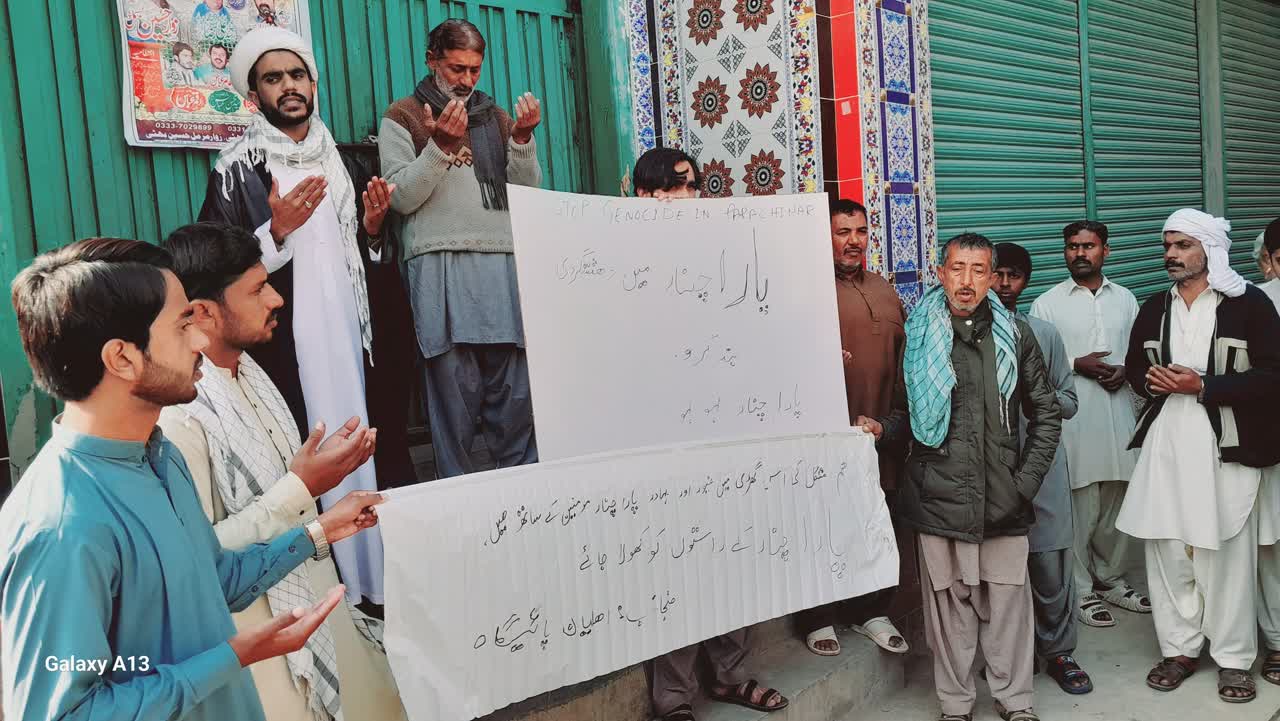 0333-7029899
0331
STOP GENOCIDE IN PARACHINAR
پارا چنار میں دہشتگردی
بند کرو.
پارا چنار لہو لہو
ہم مشکل کی اس گھڑی میں غیور اور بہادر پارا چنار مومنین کے ساتھ ہیں.
پارا چنار کے راستوں کو کھولا جائے
منجانب: اھلیان پائیگاہ
Galaxy A13